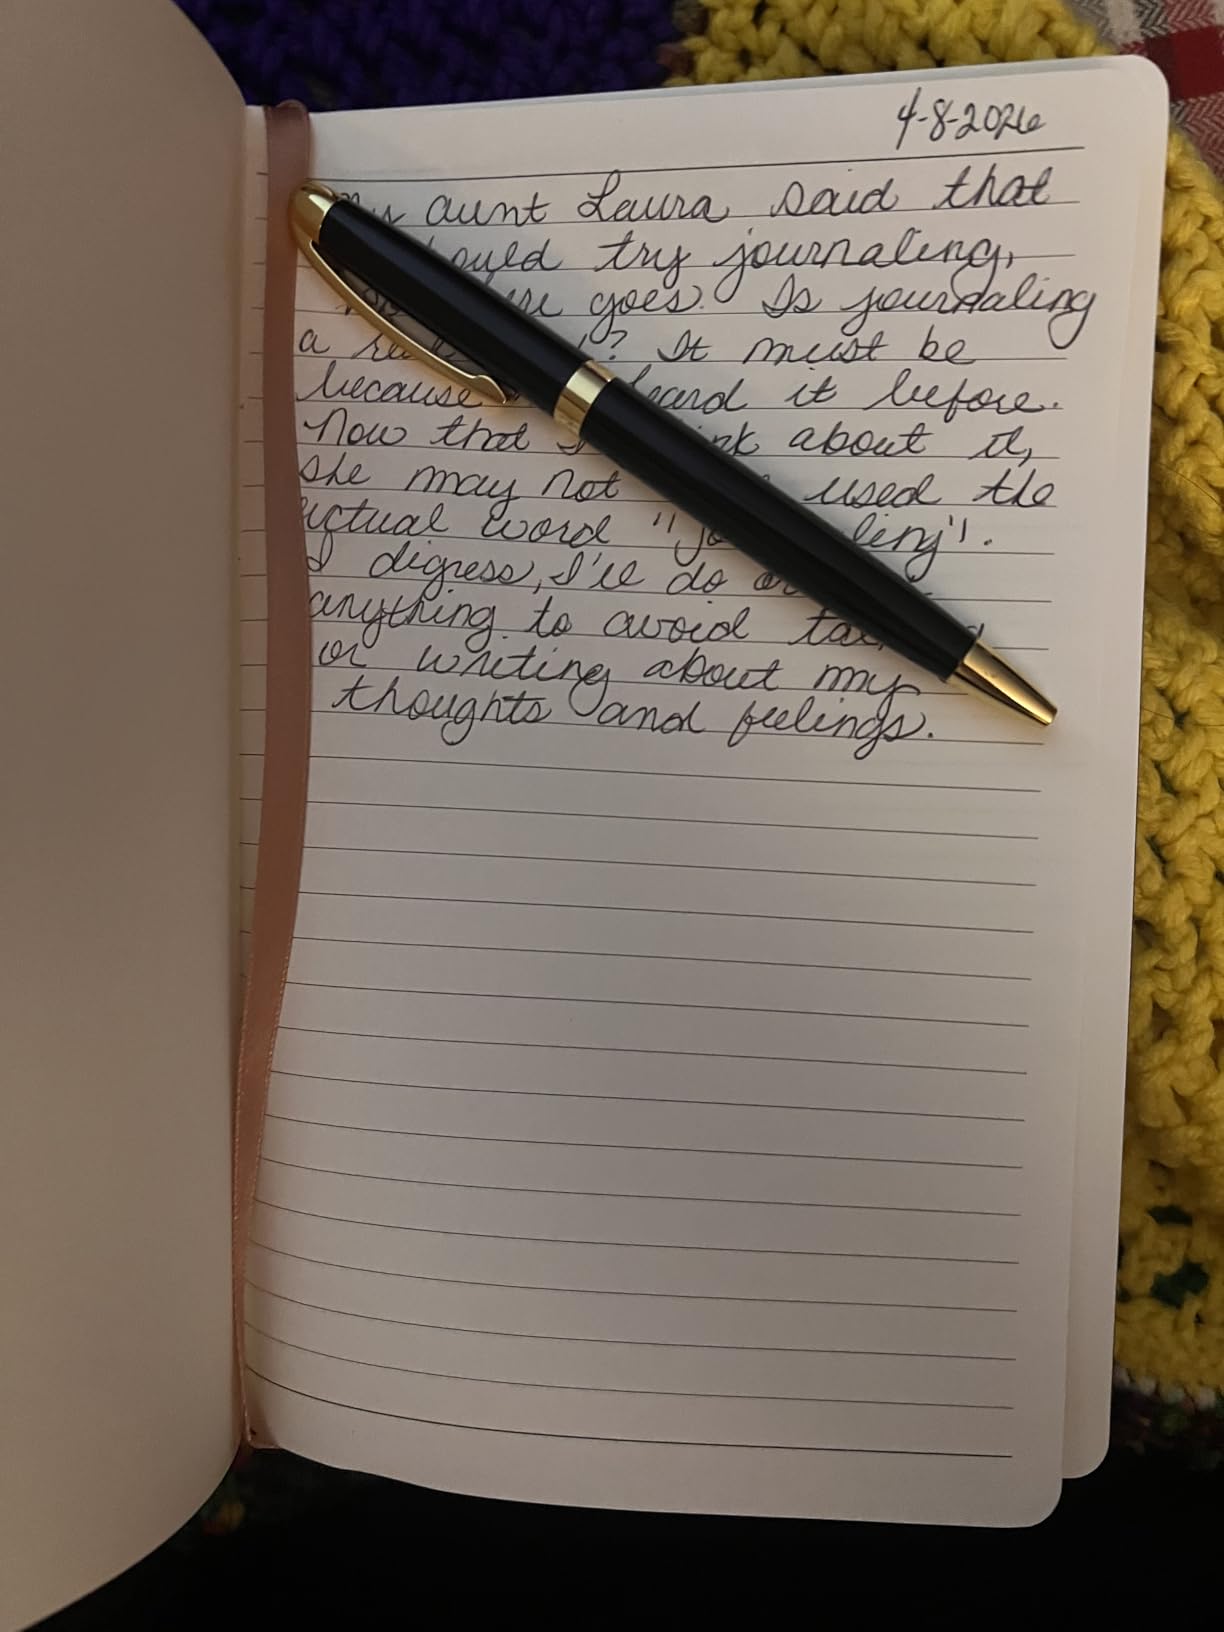 4-8-2026
My aunt Laura said that
try journaling,
goes. Is journaling
a ? It must be
because heard it before.
Now that I about it,
she may not used the
actual word "
I digress, I'll do
anything to avoid
or writing about my
thoughts and feelings.